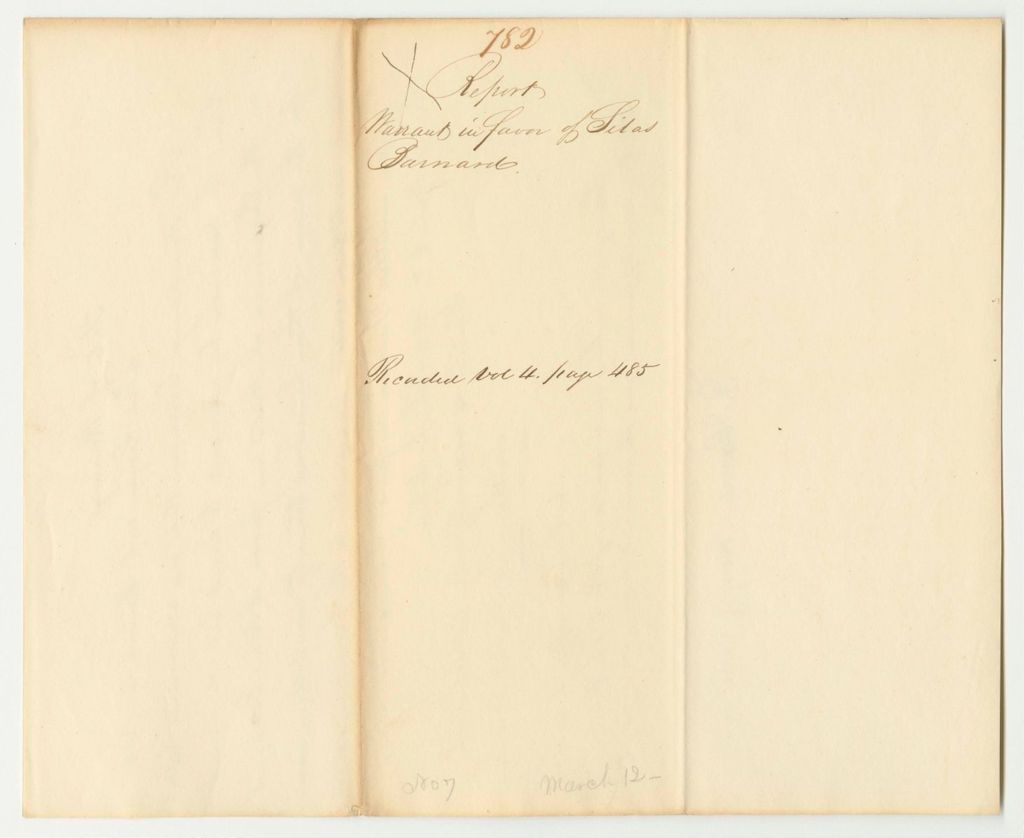 782
Report
Warrant in favor of Silas
Barnard.
Recorded Vol 4. page 485
No 7 March 12